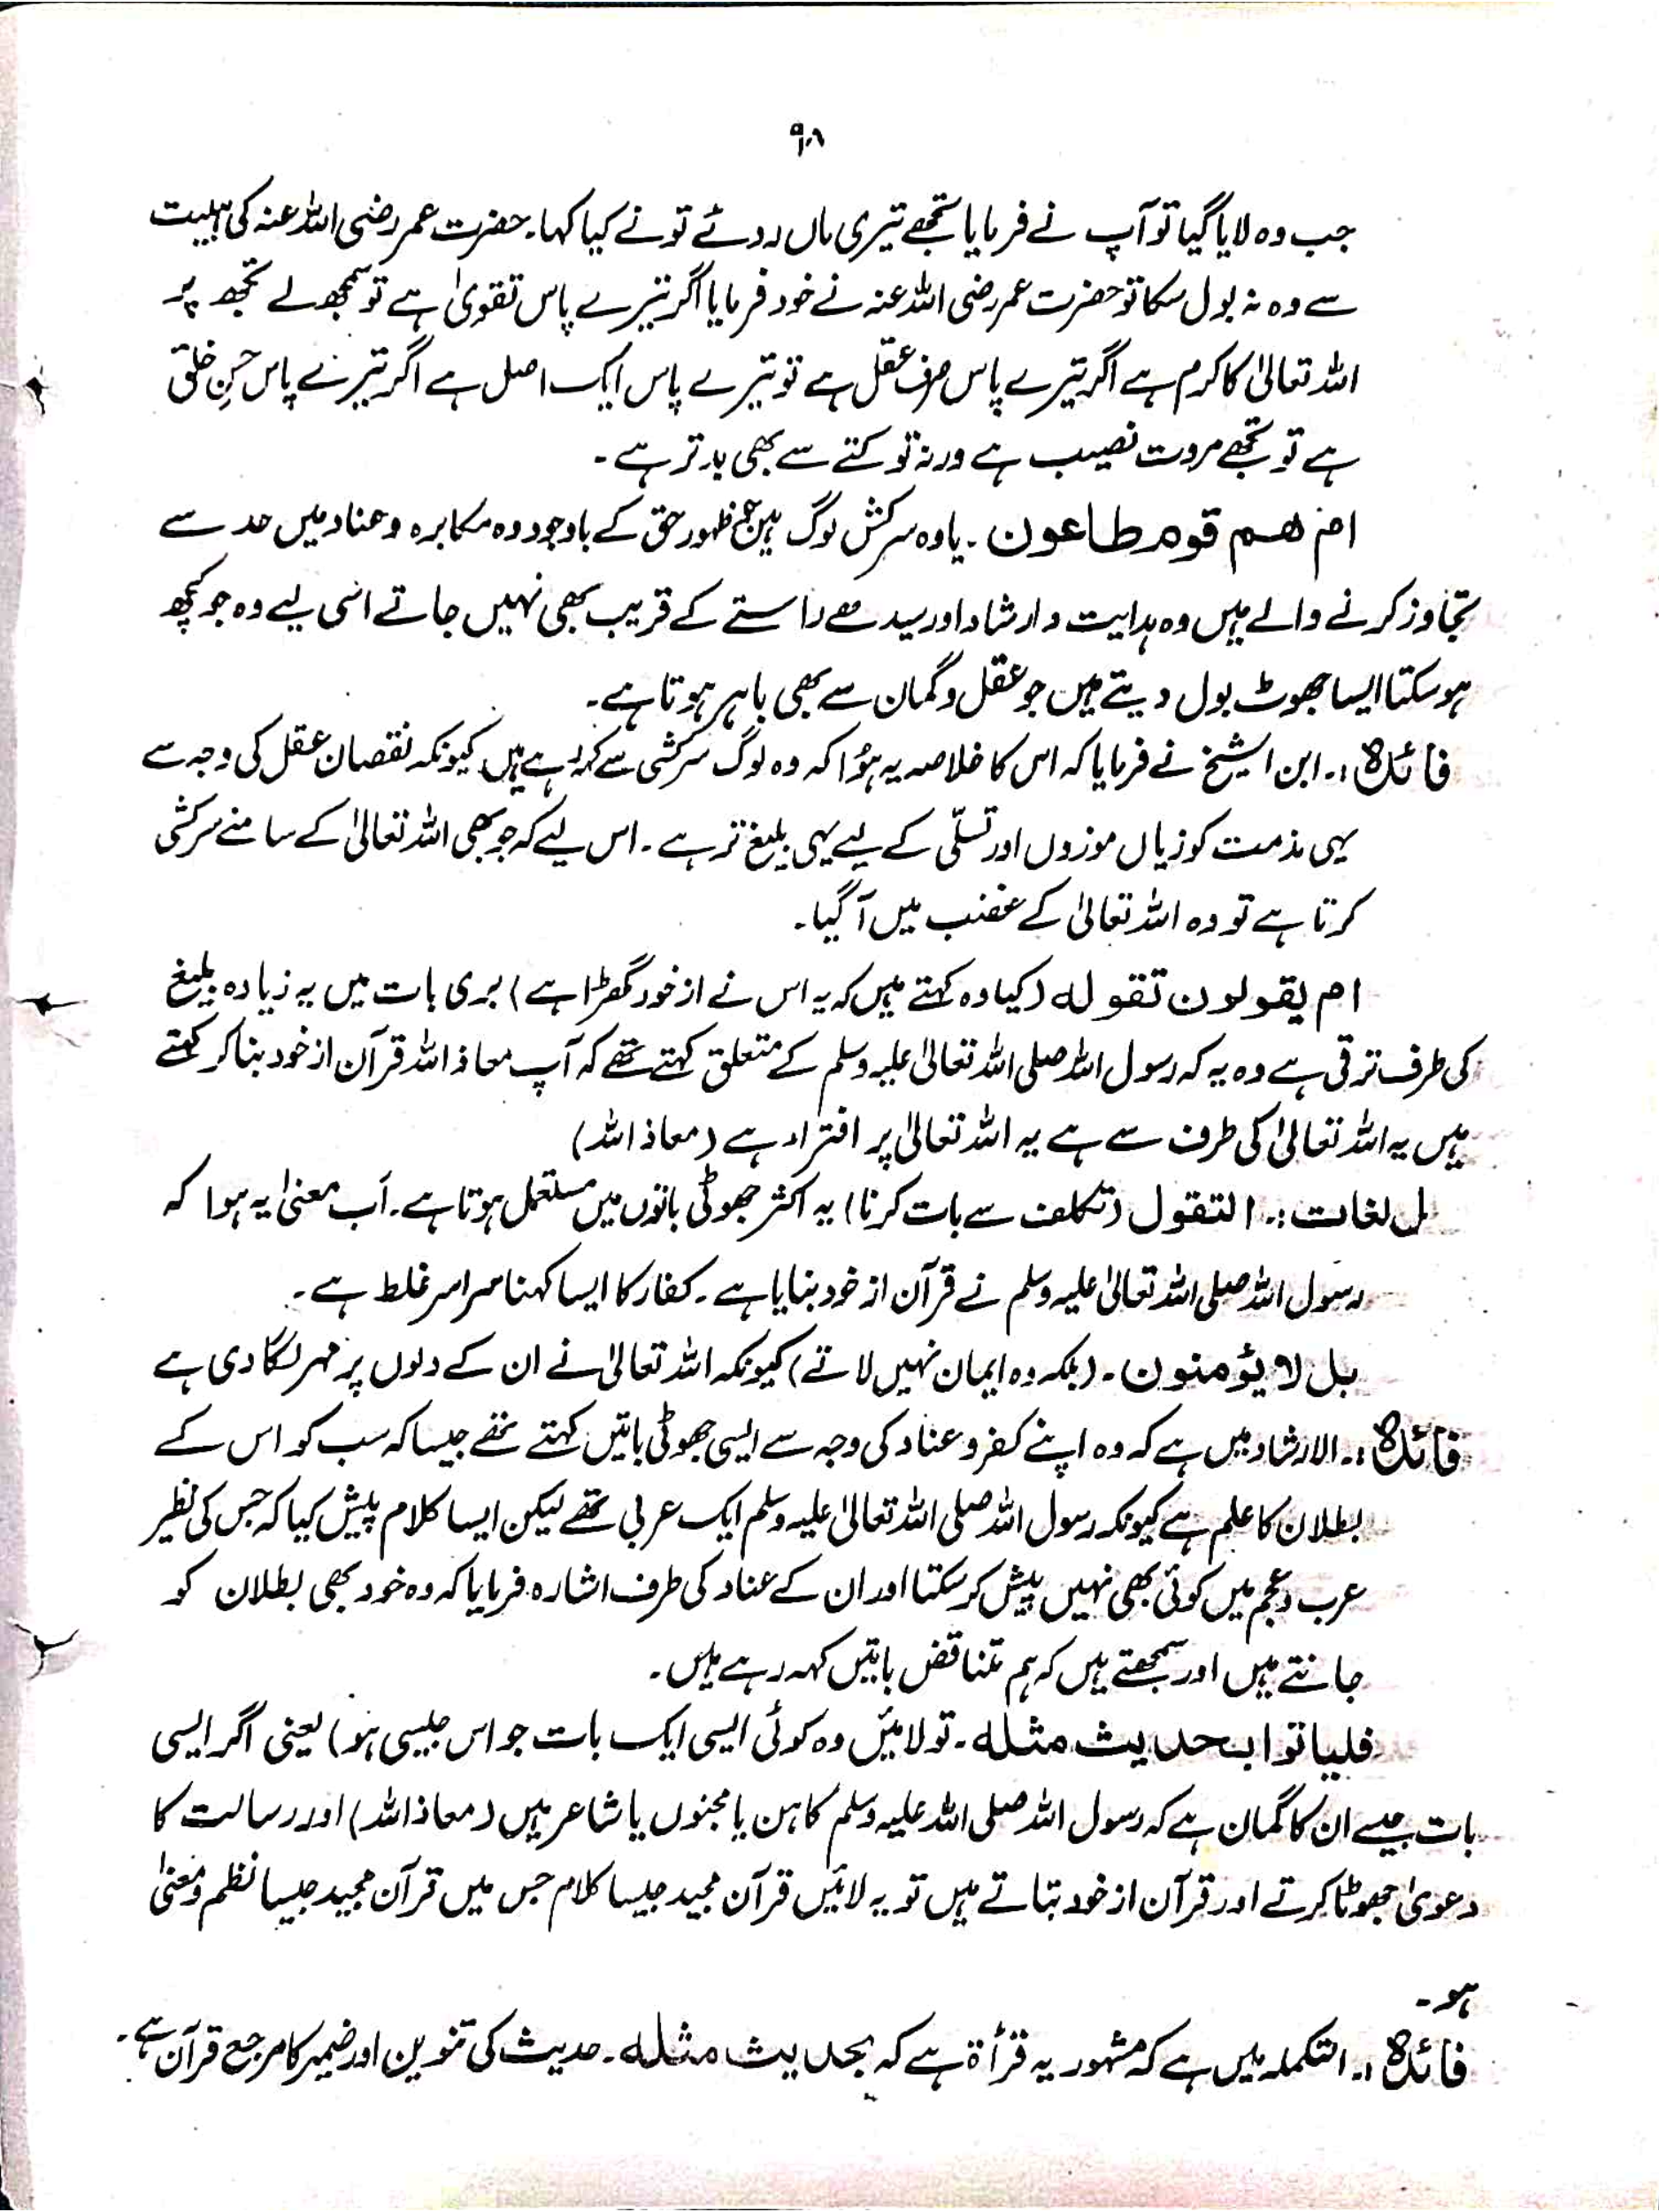 ۹۸
جب وہ لایا گیا تو آپ نے فرمایا تجھے تیری ماں روئے تو نے کیا کہا۔ حضرت عمر رضی اللہ عنہ کی ہیبت
سے وہ نہ بول سکا تو حضرت عمر رضی اللہ عنہ نے خود فرمایا اگر تیرے پاس تقویٰ ہے تو سمجھ لے تجھ پر
اللہ تعالیٰ کا کرم ہے اگر تیرے پاس صرف عقل ہے تو تیرے پاس ایک اصل ہے اگر تیرے پاس حسنِ خلق
ہے تو تجھے مروت نصیب ہے ورنہ تو کتے سے بھی بدتر ہے ۔
ام ھم قوم طاعون ۔ یا وہ سرکش لوگ ہیں ظہور حق کے باوجود وہ مکابرہ و عناد میں حد سے
تجاوز کرنے والے ہیں وہ ہدایت و ارشاد اور سیدھے راستے کے قریب بھی نہیں جاتے اسی لیے وہ جو کچھ
ہو سکتا ایسا جھوٹ بول دیتے ہیں جو عقل و گمان سے بھی باہر ہوتا ہے۔
فائدہ :۔ ابن الشیخ نے فرمایا کہ اس کا خلاصہ یہ ہؤا کہ وہ لوگ سرکشی سے کہہ رہے ہیں کیونکہ نقصان عقل کی وجہ سے
یہی مذمت کو زیاں موزوں اور تسلّی کے لیے یہی بلیغ تر ہے ۔ اس لیے کہ جو بھی اللہ تعالیٰ کے سامنے سرکشی
کرتا ہے تو وہ اللہ تعالیٰ کے غضب میں آگیا۔
ام یقولون تقولہ (کیا وہ کہتے ہیں کہ یہ اس نے از خود گھڑا ہے) بری بات میں یہ زیادہ بلیغ
کی طرف ترقی ہے وہ یہ کہ رسول اللہ صلی اللہ تعالیٰ علیہ وسلم کے متعلق کہتے تھے کہ آپ معاذ اللہ قرآن از خود بنا کر کہتے
ہیں یہ اللہ تعالیٰ کی طرف سے ہے یہ اللہ تعالیٰ پر افتراء ہے (معاذ اللہ)
ل لغات :۔ التقول (تکلف سے بات کرنا) یہ اکثر جھوٹی باتوں میں مستعمل ہوتا ہے۔ اَب معنیٰ یہ ہوا کہ
رسول اللہ صلی اللہ تعالیٰ علیہ وسلم نے قرآن از خود بنایا ہے ۔ کفار کا ایسا کہنا سراسر غلط ہے ۔
بل لا یؤمنون ۔ (بلکہ وہ ایمان نہیں لاتے) کیونکہ اللہ تعالیٰ نے ان کے دلوں پر مہر لگا دی ہے
فائدہ :۔ الارشاد میں ہے کہ وہ اپنے کفر و عناد کی وجہ سے ایسی جھوٹی باتیں کہتے تھے جیسا کہ سب کو اس کے
بطلان کا علم ہے کیونکہ رسول اللہ صلی اللہ تعالیٰ علیہ وسلم ایک عربی تھے لیکن ایسا کلام پیش کیا کہ جس کی نظیر
عرب و عجم میں کوئی بھی نہیں پیش کر سکتا اور ان کے عناد کی طرف اشارہ فرمایا کہ وہ خود بھی بطلان کو
جانتے ہیں اور سمجھتے ہیں کہ ہم متناقض باتیں کہہ رہے ہیں ۔
فلیاتوا بحدیث مثلہ ۔ تو لائیں وہ کوئی ایسی ایک بات جو اس جیسی ہو) یعنی اگر ایسی
بات جیسے ان کا گمان ہے کہ رسول اللہ صلی اللہ علیہ وسلم کاہن یا مجنوں یا شاعر ہیں (معاذ اللہ) اور رسالت کا
دعویٰ جھوٹا کرتے اور قرآن از خود بتاتے ہیں تو یہ لائیں قرآن مجید جیسا کلام جس میں قرآن مجید جیسا نظم و معنیٰ
ہو ۔
فائدہ :۔ التکملہ میں ہے کہ مشہور یہ قرأۃ ہے کہ بحدیث مثلہ ۔ حدیث کی تنوین اور ضمیر کا مرجع قرآن ہے ۔